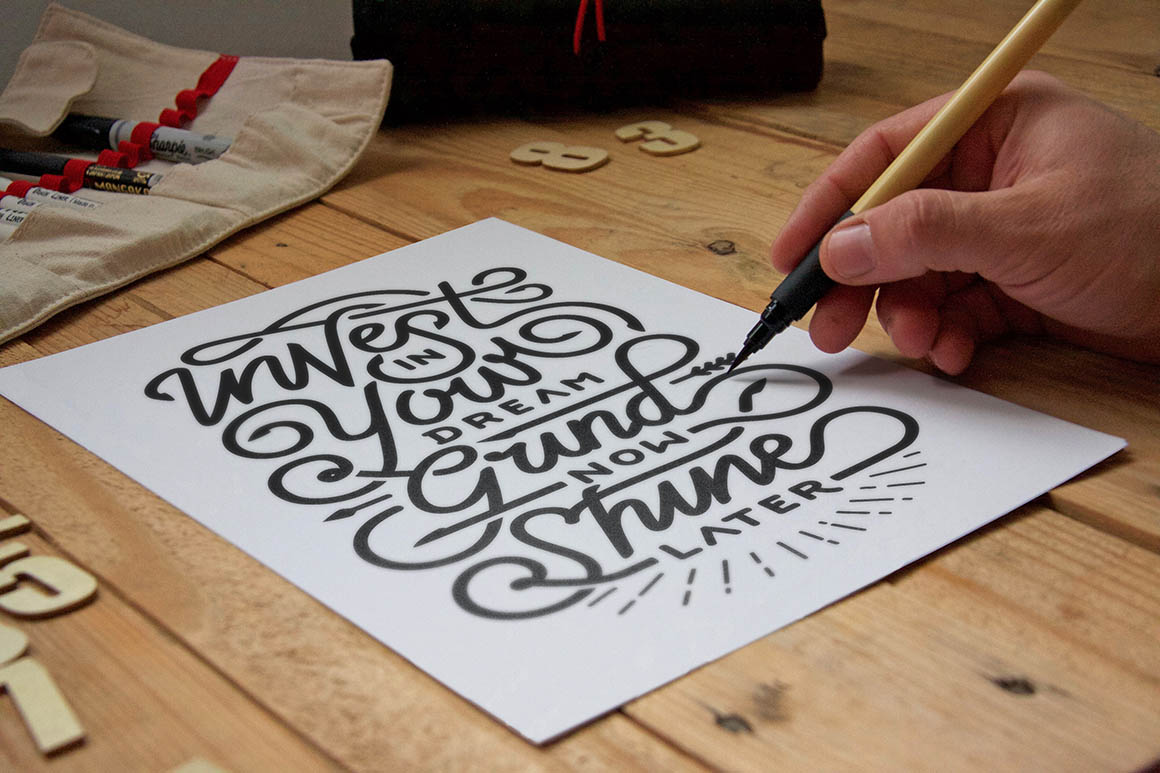 Invest
IN
Your
DREAM
Grind
NOW
Shine
LATER
Sharpie
8
3